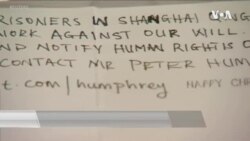 VOA
RISONERS IN SHANGHAI
WORK AGAINST OUR WILL.
ND NOTIFY HUMAN RIGHTS O
CONTACT MR PETER HUM
t.com/humphrey HAPPY CHR